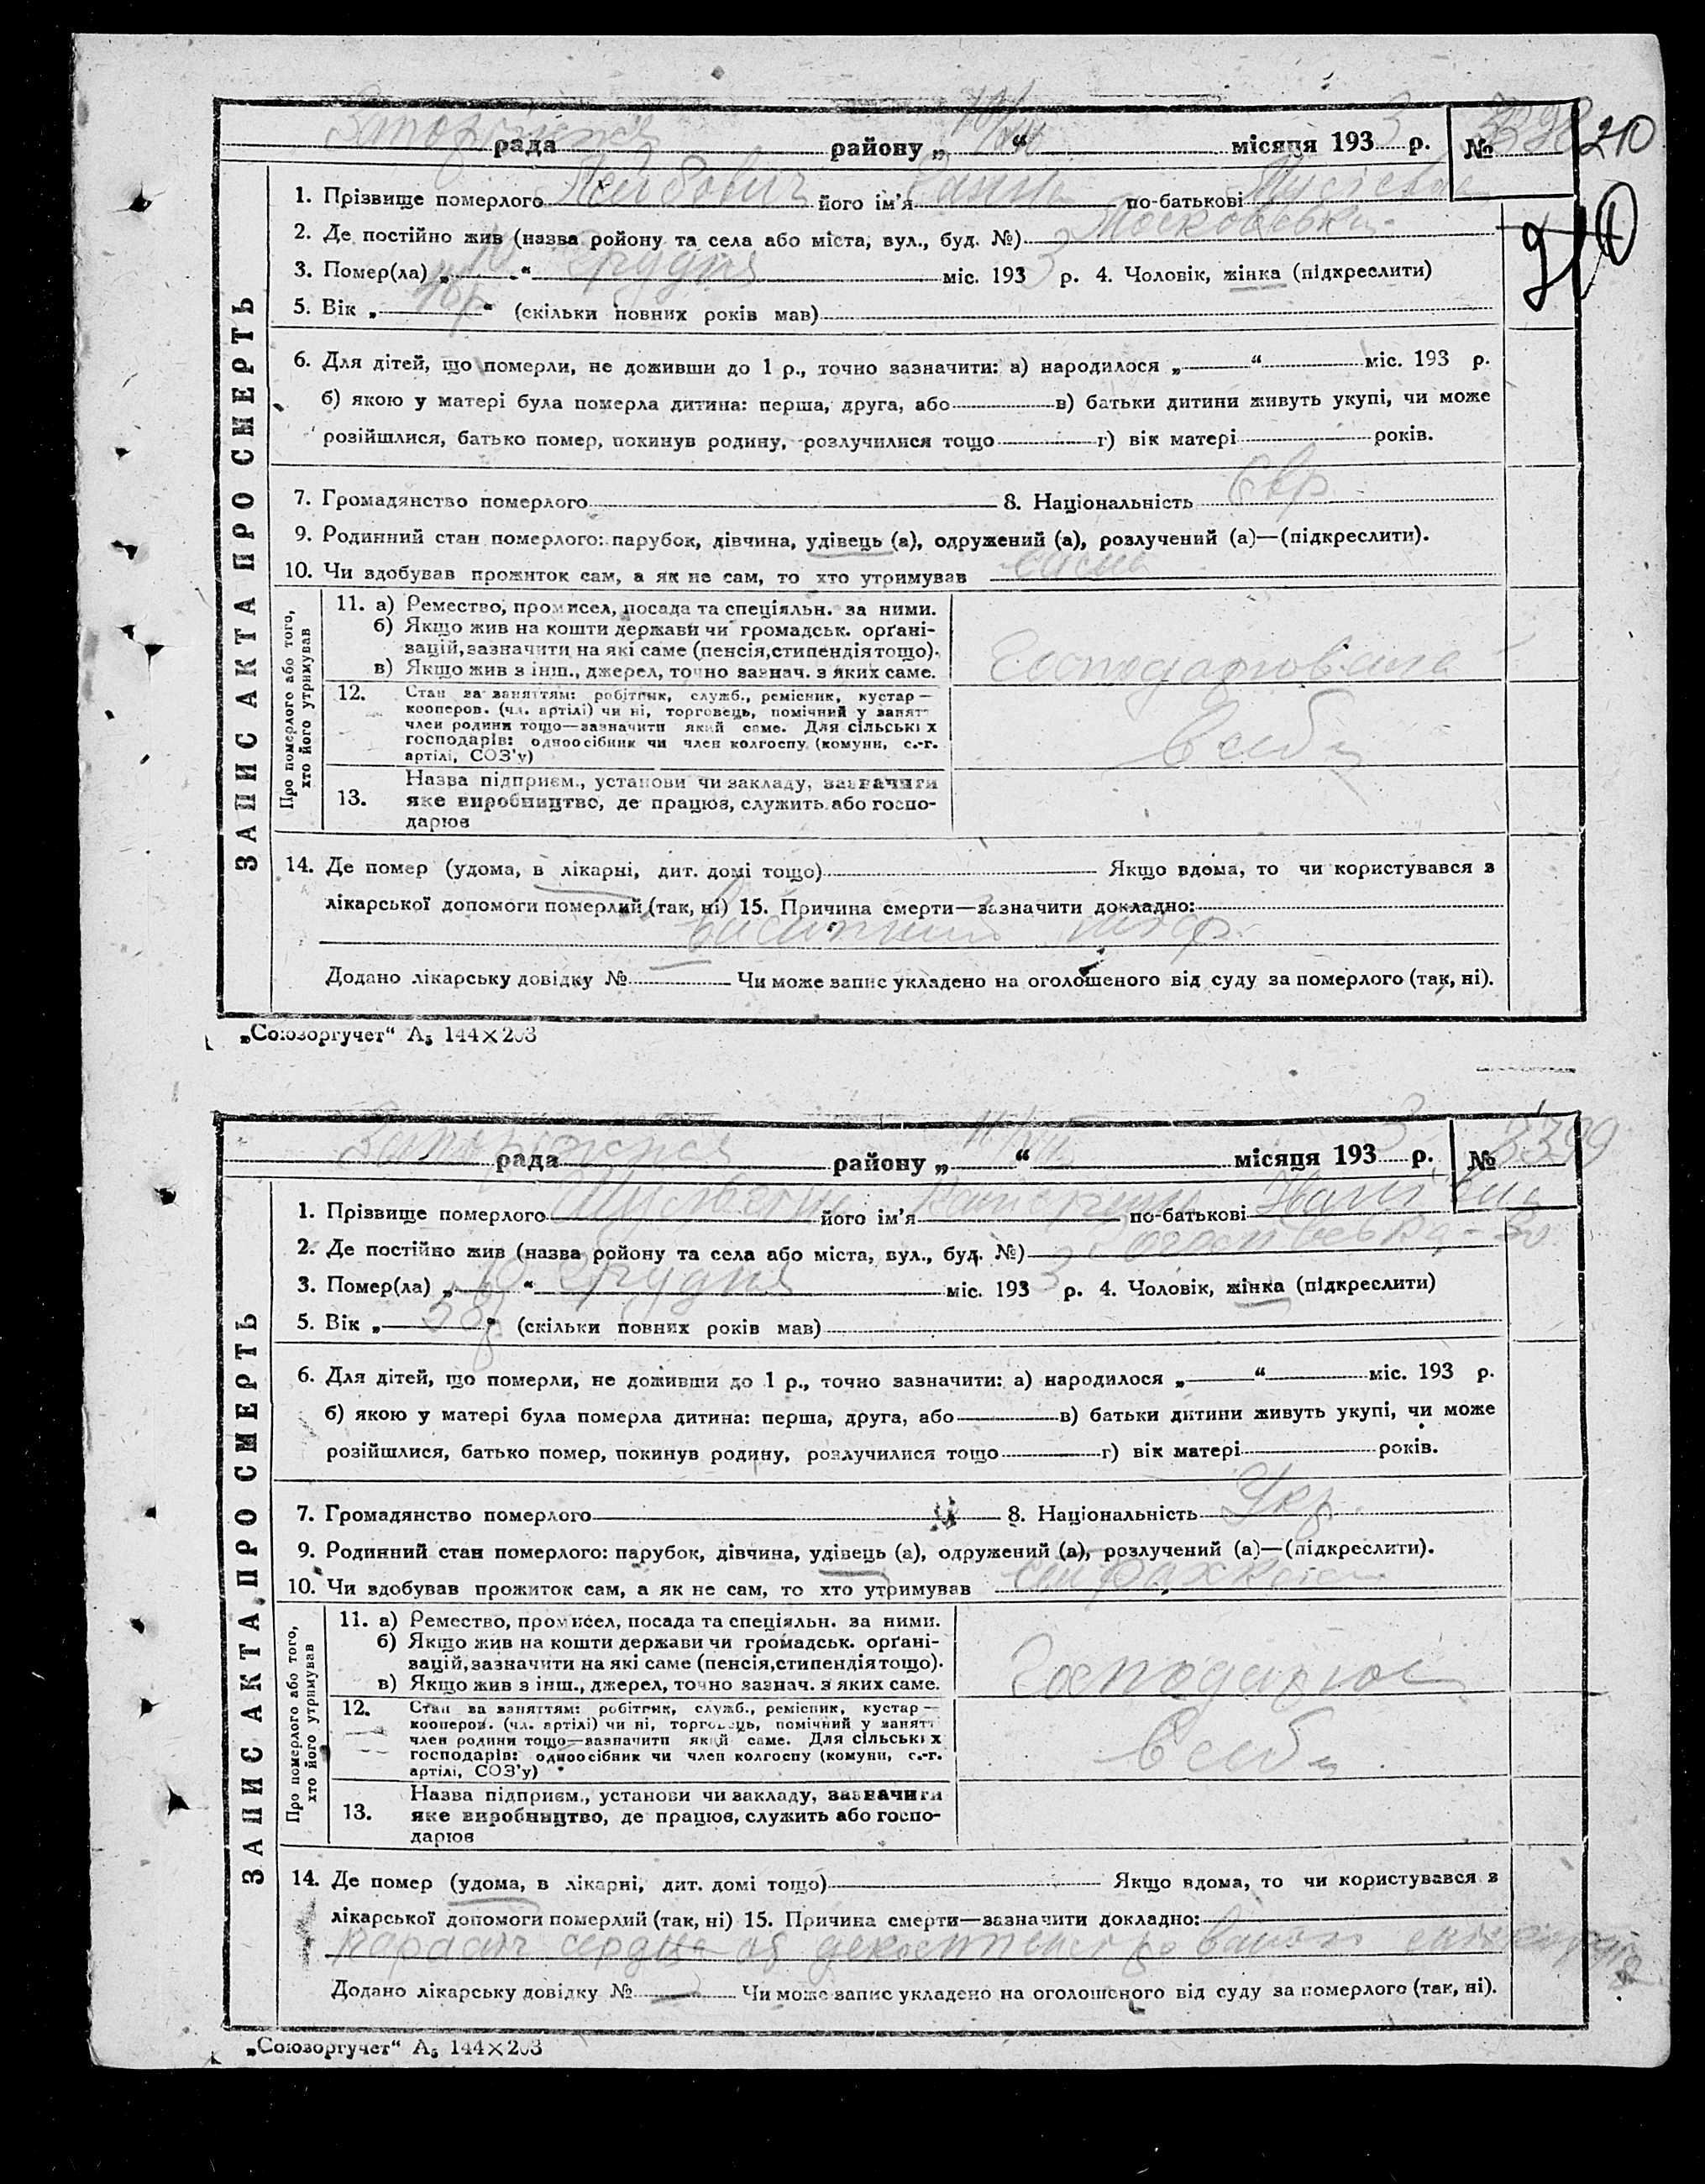 Запорізька рада району „10/XII“ місяця 1933 р. № 3398
210
1. Прізвище померлого Лейбович його ім'я по-батькові
2. Де постійно жив (назва ройону та села або міста, вул., буд. №) Московська
3. Помер(ла) „ “ Грудня міс. 1933 р. 4. Чоловік, жінка (підкреслити)
5. Вік „ “ (скільки повних років мав)
6. Для дітей, що померли, не доживши до 1 р., точно зазначити: а) народилося „ “ міс. 193 р.
б) якою у матері була померла дитина: перша, друга, або в) батьки дитини живуть укупі, чи може
розійшлися, батько помер, покинув родину, розлучилися тощо г) вік матері років.
7. Громадянство померлого 8. Національність Євр
9. Родинний стан померлого: парубок, дівчина, удівець (а), одружений (а), розлучений (а)—(підкреслити).
10. Чи здобував прожиток сам, а як не сам, то хто утримував
ЗАПИС АКТА ПРО СМЕРТЬ
Про померлого або того, хто його утримував
11. а) Ремество, промисел, посада та спеціяльн. за ними.
б) Якщо жив на кошти держави чи громадськ. орґані-
зацій, зазначити на які саме (пенсія, стипендія тощо).
в) Якщо жив з інш., джерел, точно зазнач. з яких саме.
Господарювала
12. Стан за заняттям: робітник, служб., ремісник, кустар—
кооперов. (чл. артілі) чи ні, торговець, помічний у занятт
член родини тощо—зазначити який саме. Для сільськіх
господарів: одноосібник чи член колгоспу (комуни, с.-г.
артілі, СОЗ'у)
В себе
13. Назва підприєм., установи чи закладу, зазначити
яке виробництво, де працює, служить або госпо-
дарює
14. Де помер (удома, в лікарні, дит. домі тощо) Якщо вдома, то чи користувався з
лікарської допомоги померлий (так, ні) 15. Причина смерти—зазначити докладно:
тиф
Додано лікарську довідку № Чи може запис укладено на оголошеного від суду за померлого (так, ні).
„Союзоргучет“ А₅ 144×203
Запорізька рада району „11/XII“ місяця 1933 р. № 3399
1. Прізвище померлого його ім'я по-батькові
2. Де постійно жив (назва ройону та села або міста, вул., буд. №)
3. Помер(ла) „10“ Грудня міс. 1933 р. 4. Чоловік, жінка (підкреслити)
5. Вік „58р“ (скільки повних років мав)
6. Для дітей, що померли, не доживши до 1 р., точно зазначити: а) народилося „ “ міс. 193 р.
б) якою у матері була померла дитина: перша, друга, або в) батьки дитини живуть укупі, чи може
розійшлися, батько помер, покинув родину, розлучилися тощо г) вік матері років.
7. Громадянство померлого 8. Національність Укр.
9. Родинний стан померлого: парубок, дівчина, удівець (а), одружений (а), розлучений (а)—(підкреслити).
10. Чи здобував прожиток сам, а як не сам, то хто утримував
ЗАПИС АКТА ПРО СМЕРТЬ
Про померлого або того, хто його утримував
11. а) Ремество, промисел, посада та спеціяльн. за ними.
б) Якщо жив на кошти держави чи громадськ. орґані-
зацій, зазначити на які саме (пенсія, стипендія тощо).
в) Якщо жив з інш., джерел, точно зазнач. з яких саме.
Господарює
12. Стан за заняттям: робітник, служб., ремісник, кустар—
кооперов. (чл. артілі) чи ні, торговець, помічний у занятт
член родини тощо—зазначити який саме. Для сільськіх
господарів: одноосібник чи член колгоспу (комуни, с.-г.
артілі, СОЗ'у)
В себе
13. Назва підприєм., установи чи закладу, зазначити
яке виробництво, де працює, служить або госпо-
дарює
14. Де помер (удома, в лікарні, дит. домі тощо) Якщо вдома, то чи користувався з
лікарської допомоги померлий (так, ні) 15. Причина смерти—зазначити докладно:
сердца
Додано лікарську довідку № Чи може запис укладено на оголошеного від суду за померлого (так, ні).
„Союзоргучет“ А₅ 144×203